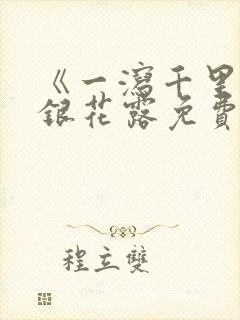 《一瀉千里
銀花露免費
程立雙